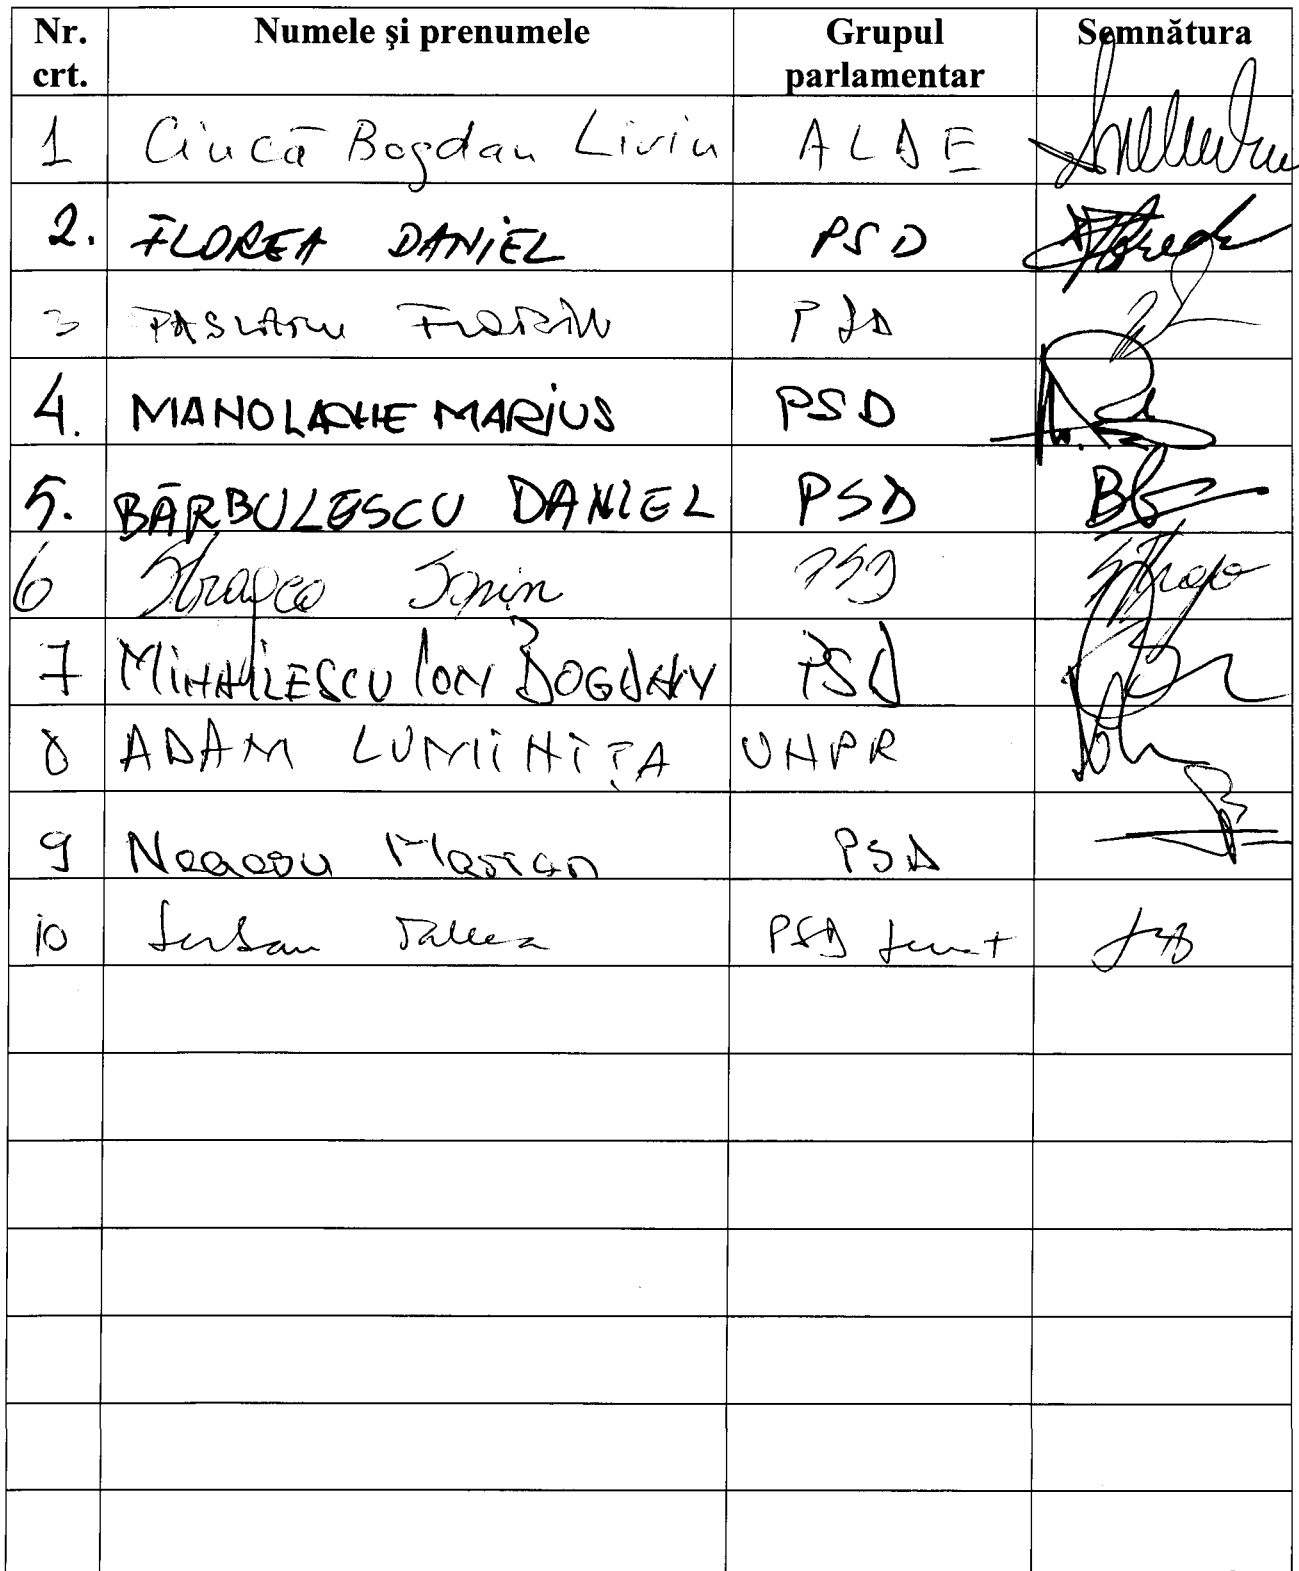 Nr. crt. Numele şi prenumele Grupul parlamentar Semnătura
1 Ciucă Bogdan Liviu ALDE
2. FLOREA DANIEL PSD
3 PASLARU FLORIN PSD
4. MANOLACHE MARIUS PSD
5. BĂRBULESCU DANIEL PSD
6 PSD
7 MIHĂILESCU ION BOGDAN PSD
8 ADAM LUMINIȚA UNPR
9 Neacsu Marian PSD
10 Serban PSD Senat